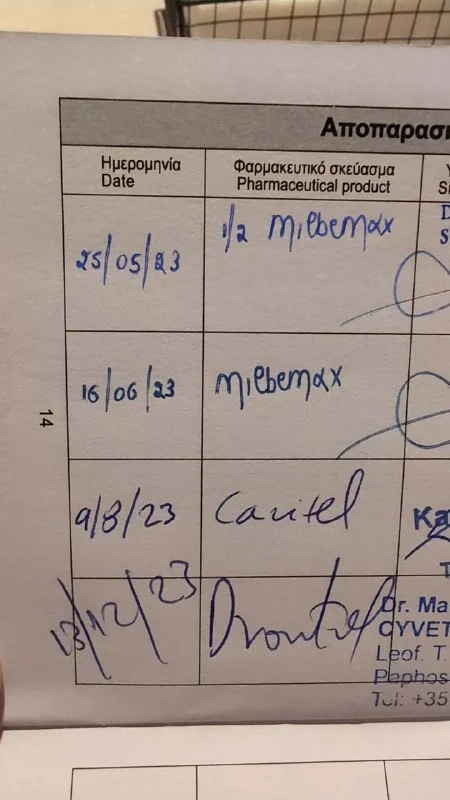 Αποπαρασι
Ημερομηνία
Date
Φαρμακευτικό σκεύασμα
Pharmaceutical product
25/05/23
1/2 Milbemax
16/06/23
Milbemax
9/8/23
Canitel
Ka
13/12/23
Drontal
Dr. Ma
CYVET
Leof. T.
Paphos
Tel: +35
14